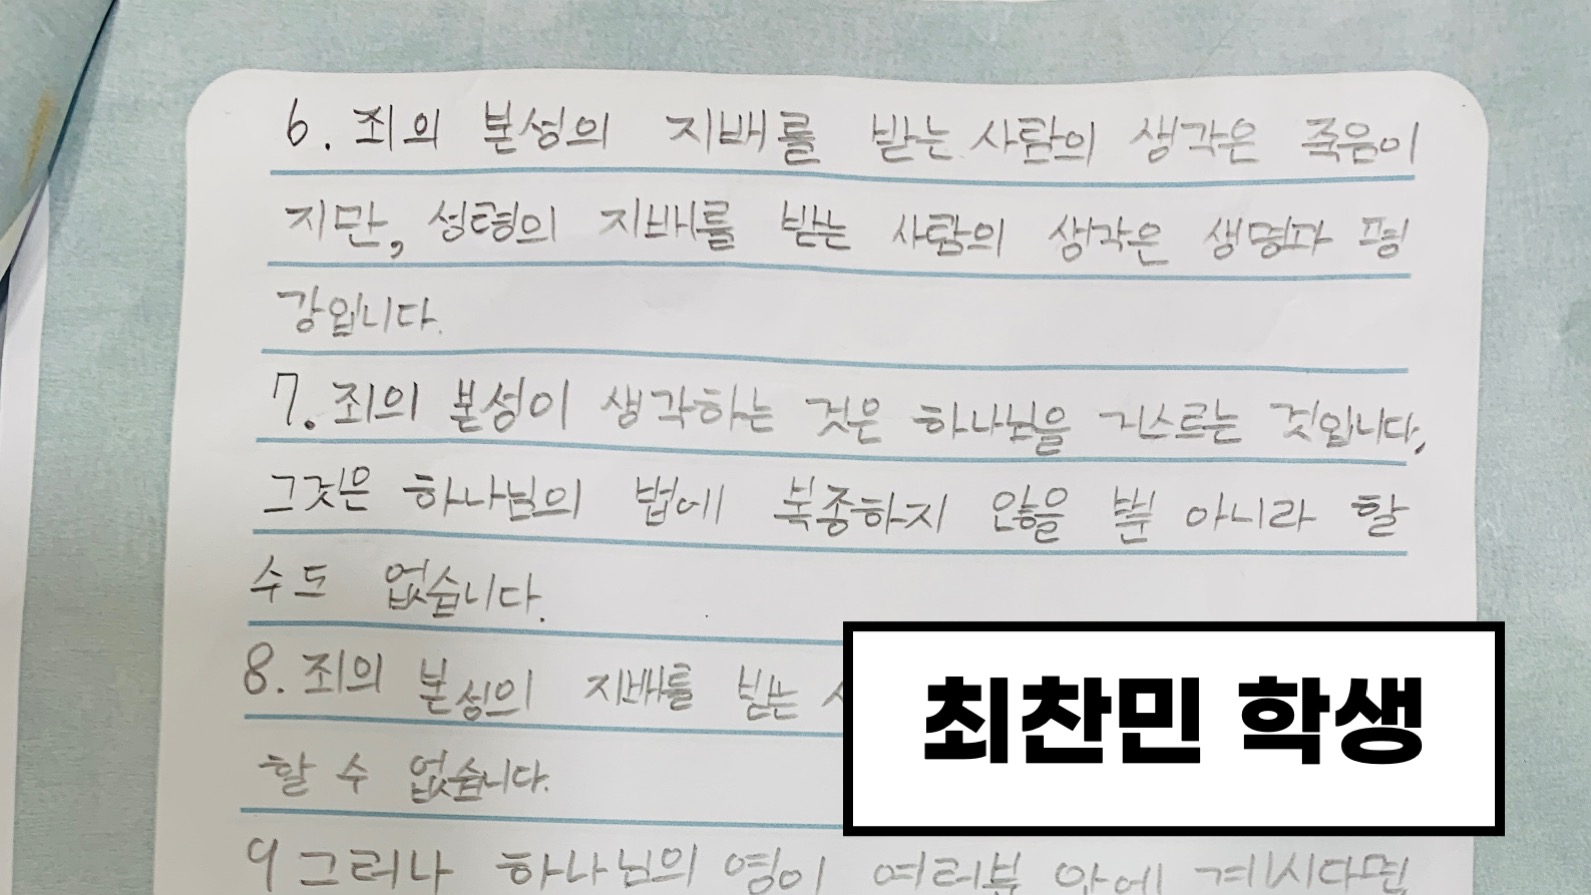 6. 죄의 본성의 지배를 받는 사람의 생각은 죽음이
지만, 성령의 지배를 받는 사람의 생각은 생명과 평
강입니다.
7. 죄의 본성이 생각하는 것은 하나님을 거스르는 것입니다,
그것은 하나님의 법에 복종하지 않을 뿐 아니라 할
수도 없습니다.
8. 죄의 본성의 지배를 받는
할 수 없습니다.
9 그러나 하나님의 영이 여러분 안에 계시다면
최찬민 학생